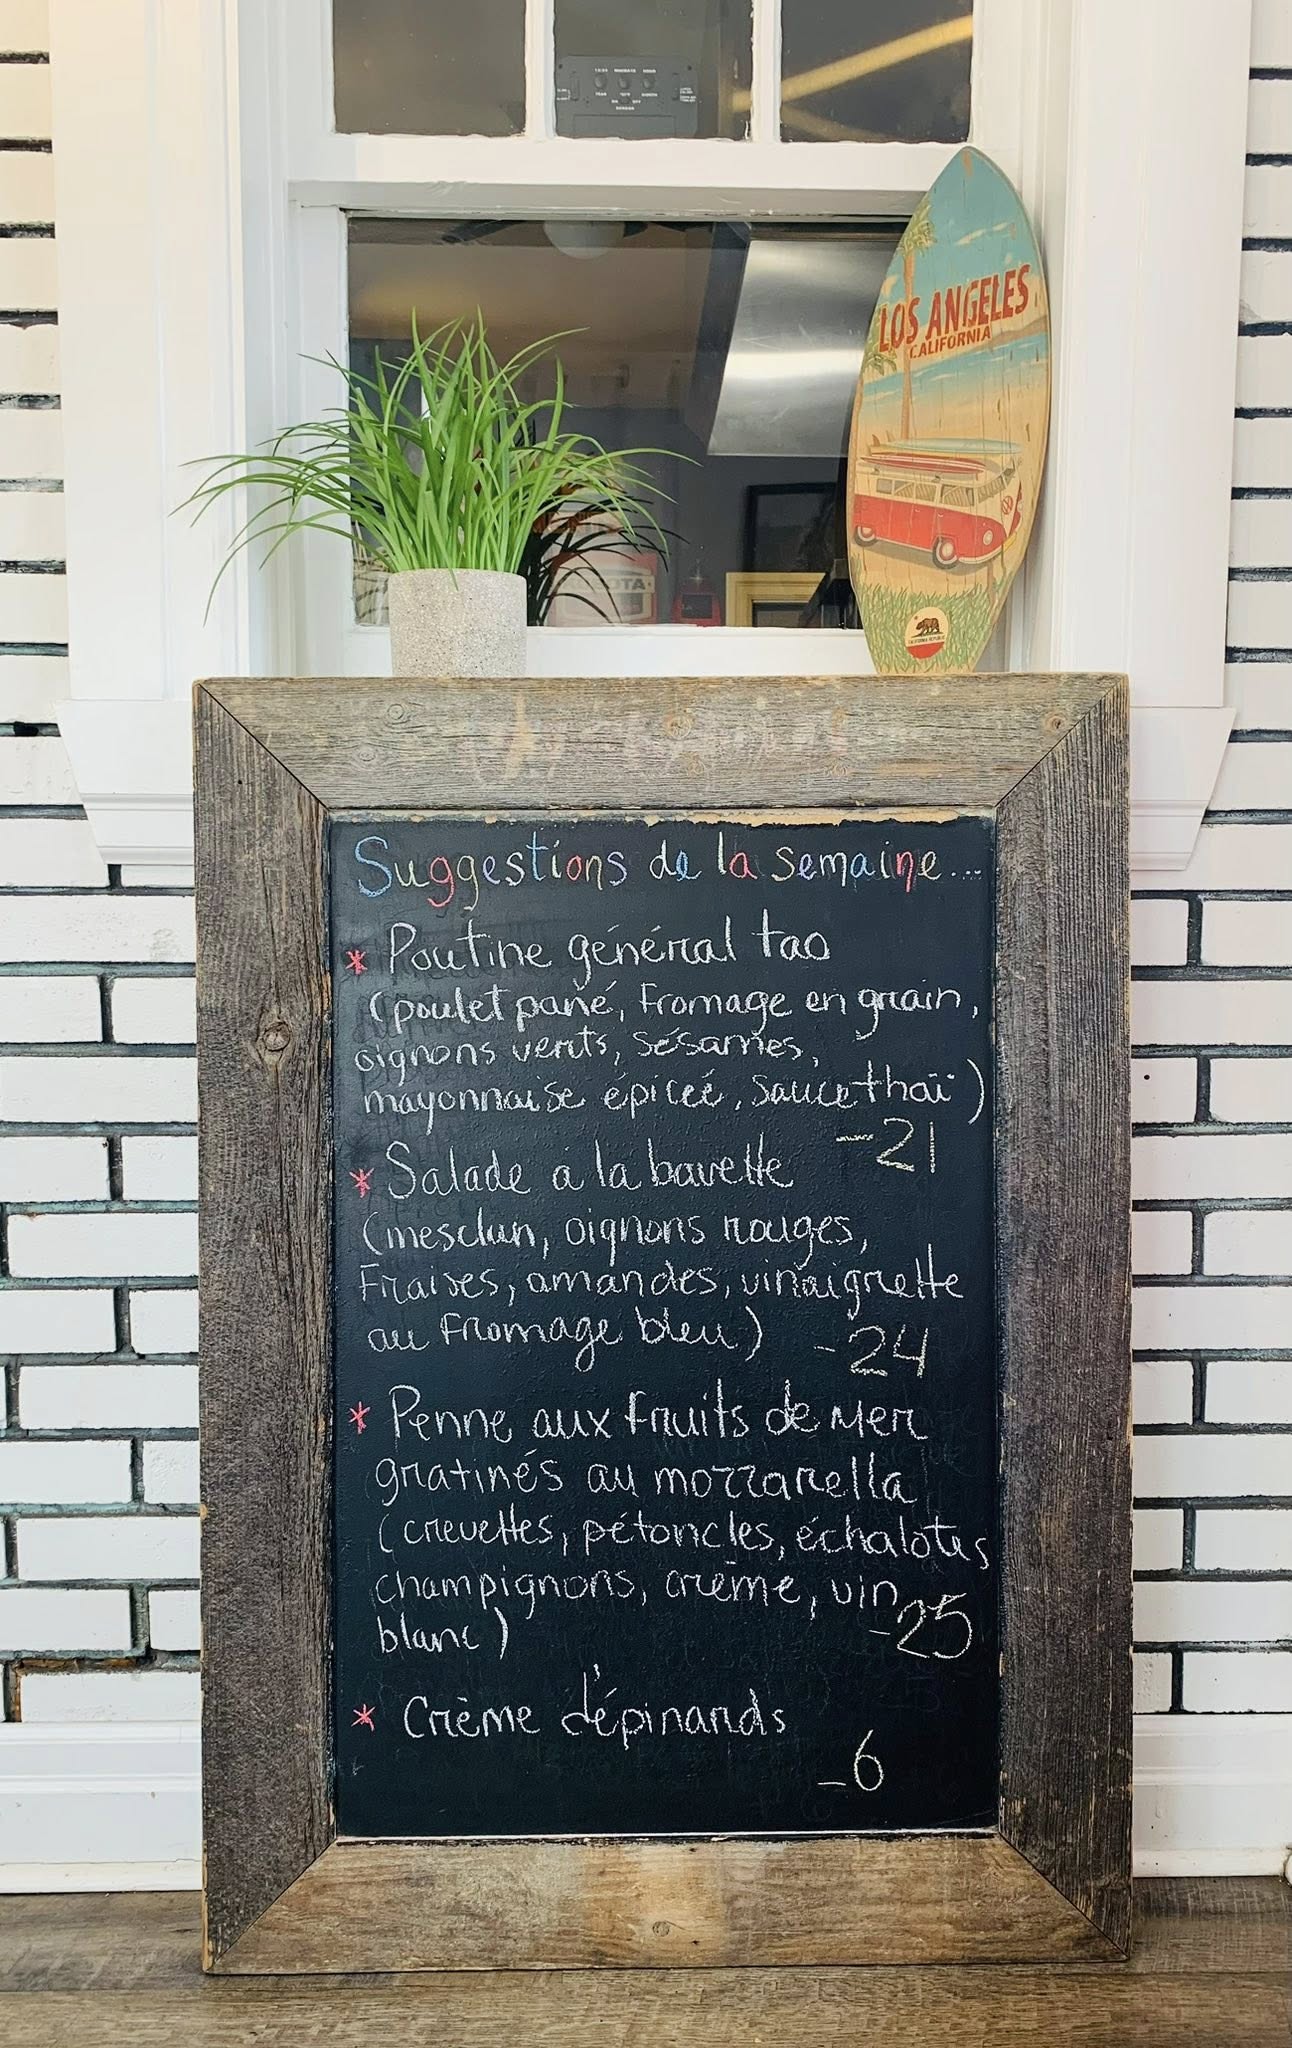 LOS ANGELES
CALIFORNIA
CALIFORNIA REPUBLIC
Suggestions de la semaine...
* Poutine général tao
(poulet pané, fromage en grain,
oignons verts, sésames,
mayonnaise épiceé, sauce thaï)
-21
* Salade à la bavette
(mesclun, oignons rouges,
fraises, amandes, vinaigrette
au fromage bleu)
-24
* Penne aux fruits de mer
gratinés au mozzarella
(crevettes, pétoncles, échalotes
champignons, crème, vin
blanc)
-25
* Crème d'épinards
-6